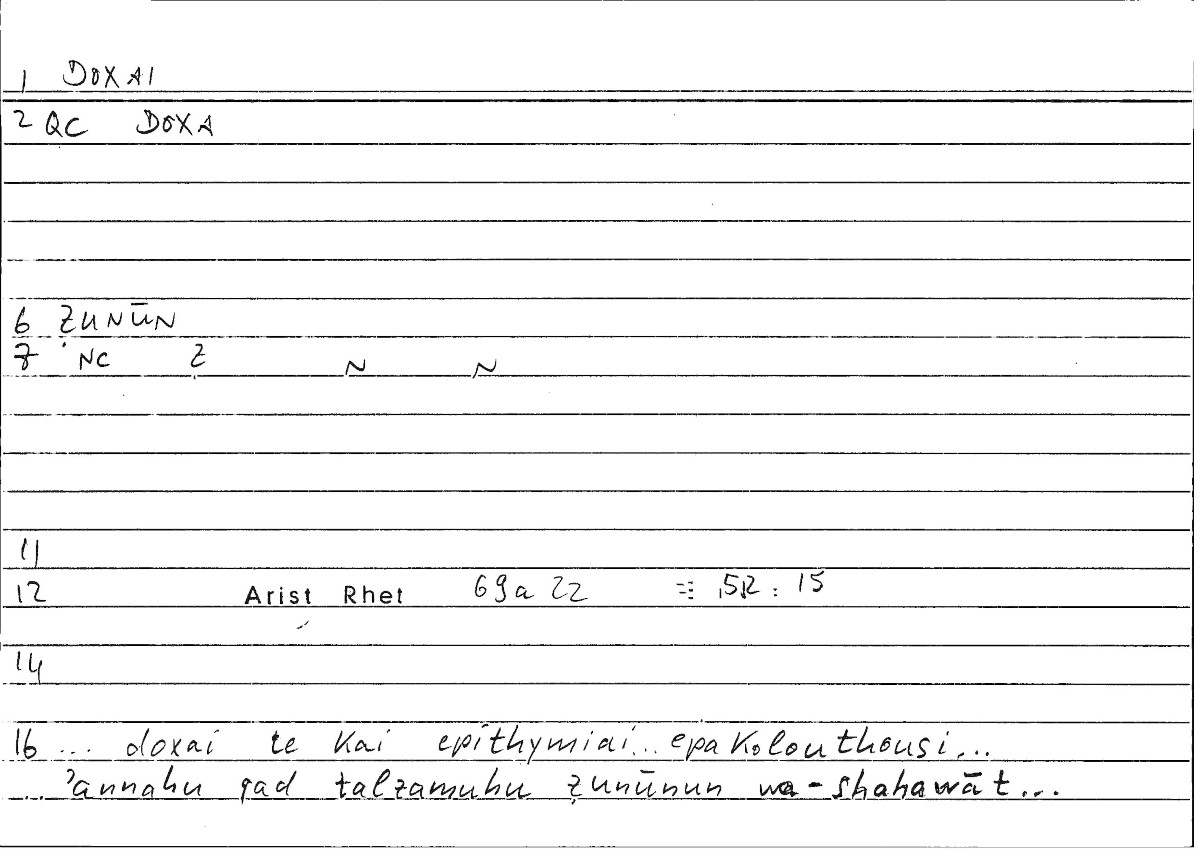 1 DOXAI
2 QC DOXA
6 ẒUNŪN
7 NC Ẓ N N
11
12 Arist Rhet 69a22 = 52:15
14
16 ... doxai te kai epithymiai... epakolouthousi...
... 'annahu qad talzamuhu ẓunūnun wa-shahawāt...